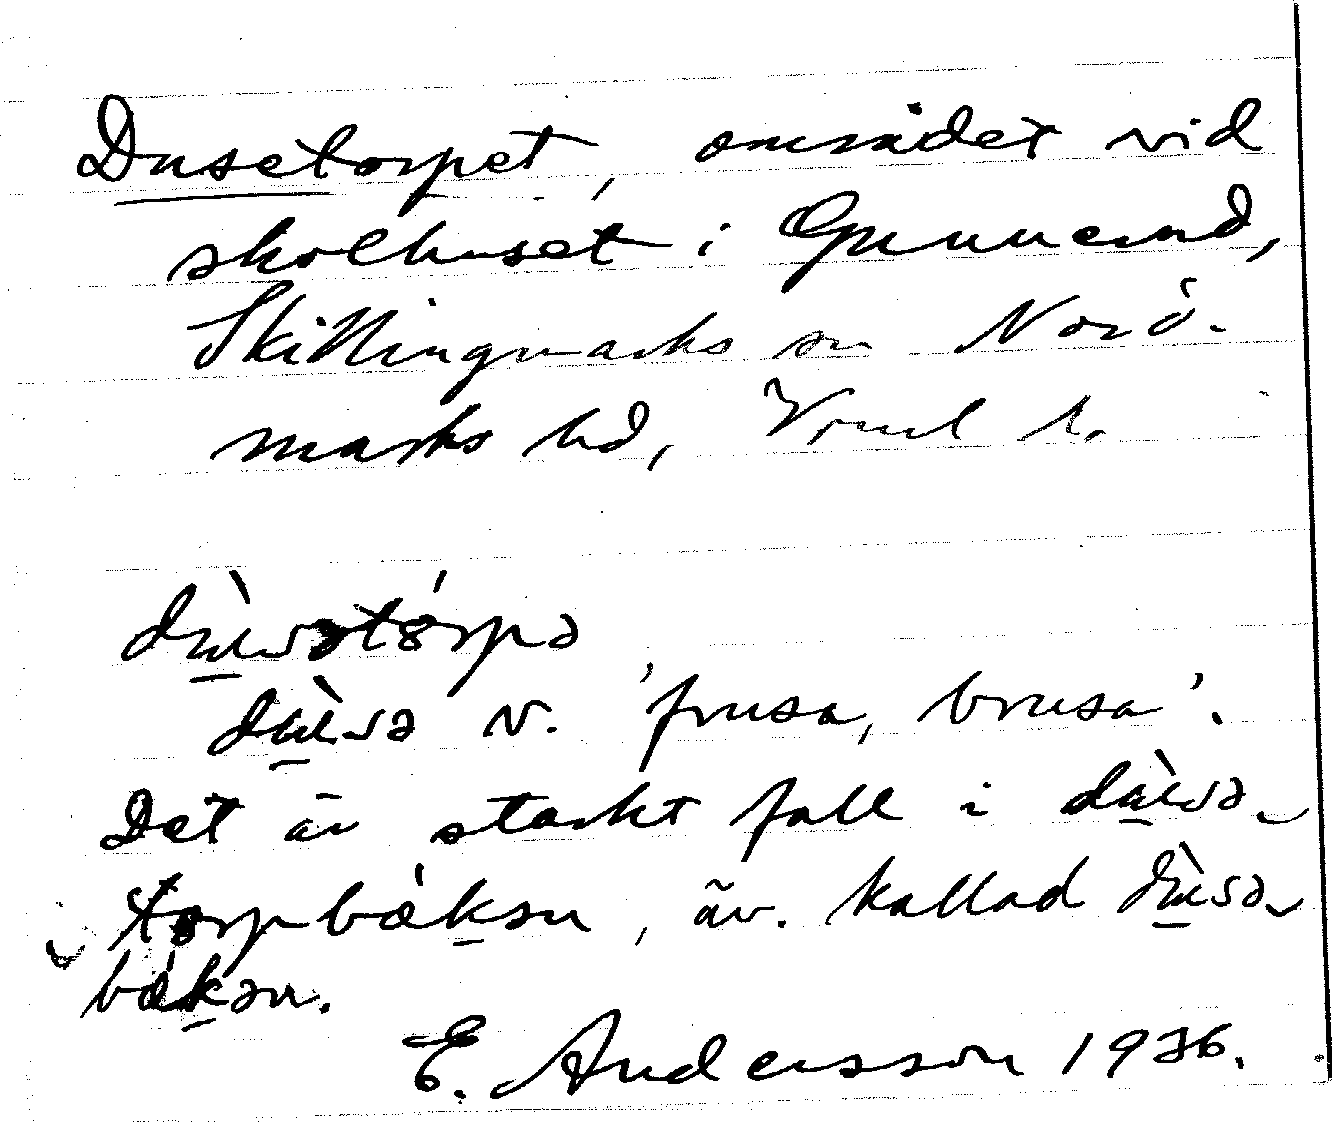 Dusetorpet, området vid
skolhuset i Gunnerud,
Skillingmarks sn Nord-
marks hd, Vrml l.
dùsətórpə
dùsə v. 'frusa, brusa'.
Det är starkt fall i dùsə
torpbækən, äv. kallad dùsə
bækən.
E. Andersson 1936.